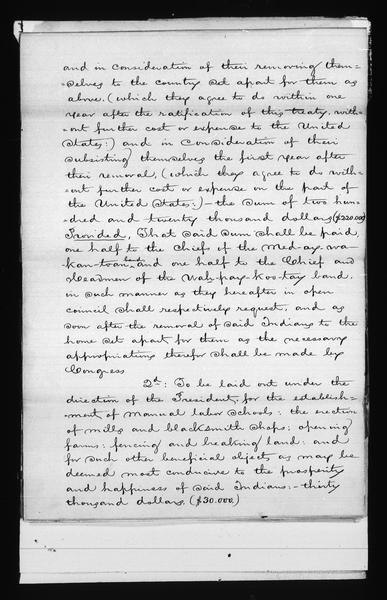 and in consideration of their removing them=
=selves to the country set apart for them as
above, (which they agree to do within one
year after the ratification of this treaty, with-
out further cost or expense to the United
States:) and in consideration of their
subsisting themselves the first year after
their removal, (which they agree to do with=
=out further cost or expense on the part of
the United States:) – the sum of two hun=
=dred and twenty thousand dollars ($220.000)
Provided, That said sum shall be paid,
one half to the Chief of the Med-ay-wa-
kan-toan band and one half to the Chief and
Headmen of the Wah-pay-koo-tay band,
in such manner as they hereafter in open
council shall respectively request, and as
soon after the removal of said Indians to the
home set apart for them as the necessary
appropriations therefor shall be made by
Congress
2d: To be laid out under the
direction of the President, for the establish=
=ment of manual labor schools; the erection
of mills and blacksmith shops; opening
farms; fencing and breaking land; and
for such other beneficial objects as may be
deemed most conducive to the prosperity
and happiness of said Indians:– thirty
thousand dollars. ($30.000)